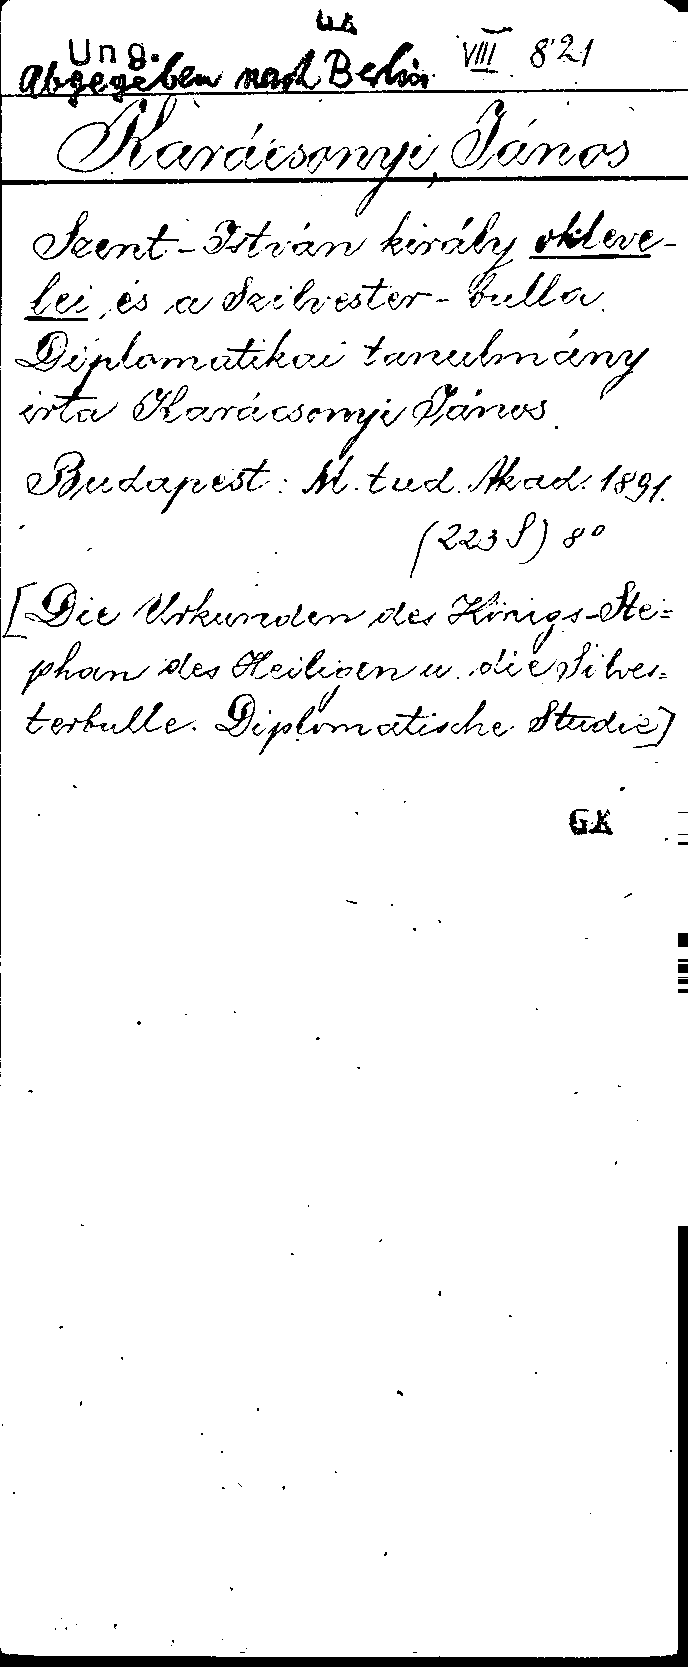 GK
Ung. VIII 821
Abgegeben nach Berlin
Karácsonyi, János
Szent-István király okleve-
lei és a Szilvester-bulla.
Diplomatikai tanulmány
irta Karácsonyi János.
Budapest: M. tud. Akad. 1891.
(223 S) 8°
[Die Urkunden des Königs-Ste=
phan des Heiligen u. die Silves=
terbulle. Diplomatische Studie]
GK